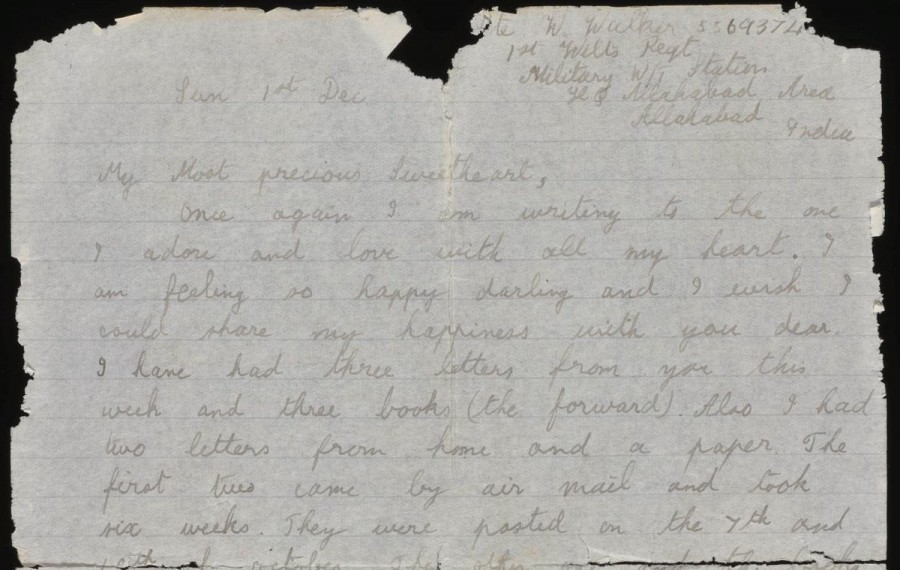 Pte W. Walker 5569374
1st Wilts Regt
Military W/T Station
Sun 1st Dec
HQ Allahabad Area
Allahabad
India
My Most precious Sweetheart,
Once again I am writing to the one
I adore and love with all my heart. I
am feeling so happy darling and I wish I
could share my happiness with you dear.
I have had three letters from you this
week and three books (the forward). Also I had
two letters from home and a paper. The
first two came by air mail and took
six weeks. They were posted on the 7th and
of october. The other and the